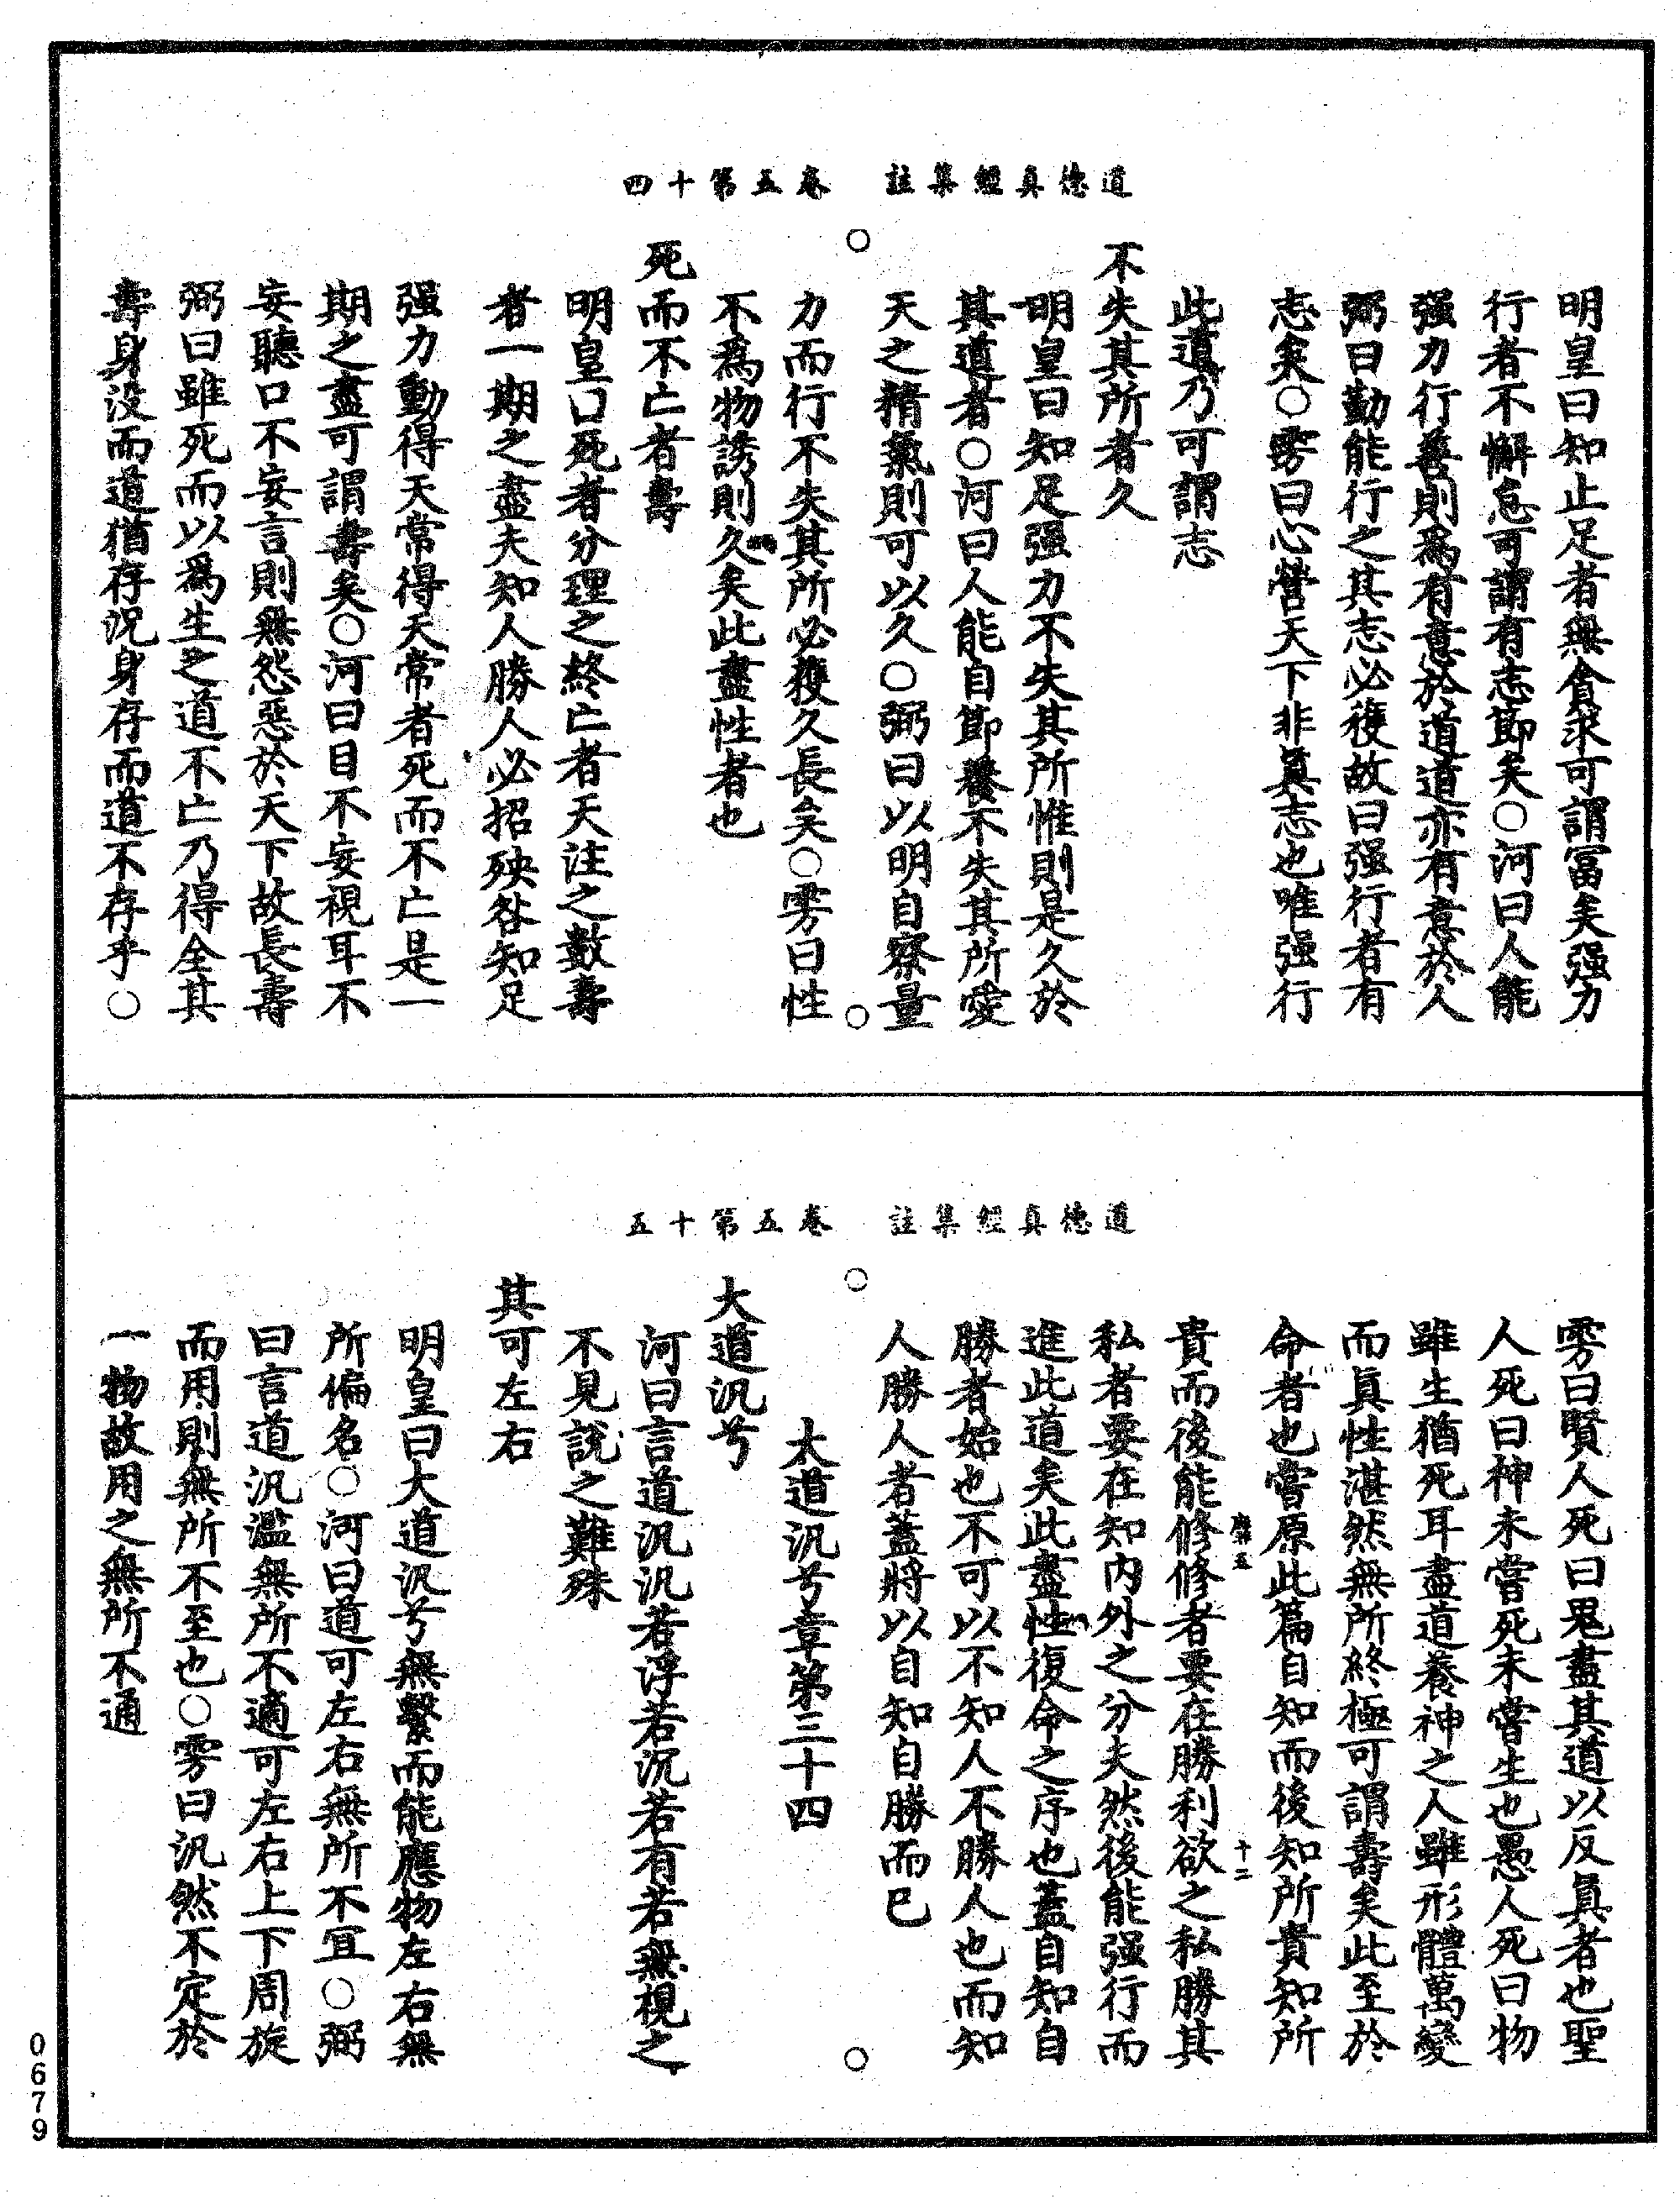 道德真經集註　卷五第十四
明皇曰知止足者無貪求可謂富矣强力
行者不懈怠可謂有志節矣○河曰人能
强力行善則爲有意於道道亦有意於人
弼曰勤能行之其志必穫故曰强行者有
志矣○雱曰心營天下非眞志也唯强行
此道乃可謂志
不失其所者久
明皇曰知足强力不失其所惟則是久於
其道者○河曰人能自節養不失其所愛
天之精氣則可以久○弼曰以明自察量
力而行不失其所必穫久長矣○雱曰性
不爲物誘則久矣此盡性者也
死而不亡者壽
明皇曰死者分理之終亡者夭注之數壽
者一期之盡夫知人勝人必招殃咎知足
强力動得天常得天常者死而不亡是一
期之盡可謂壽矣○河曰目不妄視耳不
妄聽口不妄言則無怨惡於天下故長壽
弼曰雖死而以爲生之道不亡乃得全其
壽身没而道猶存況身存而道不存乎○
道德真經集註　卷五第十五
雱曰賢人死曰鬼盡其道以反眞者也聖
人死曰神未嘗死未嘗生也愚人死曰物
雖生猶死耳盡道養神之人雖形體萬變
而眞性湛然無所終極可謂壽矣此至於
命者也嘗原此篇自知而後知所貴知所
十二
貴而後能修修者要在勝利欲之私勝其
私者要在知内外之分夫然後能强行而
進此道矣此盡性復命之序也蓋自知自
勝者始也不可以不知人不勝人也而知
人勝人者蓋將以自知自勝而已
大道汎兮章第三十四
大道汎兮
河曰言道汎汎若浮若沉若有若無視之
不見說之難殊
其可左右
明皇曰大道汎兮無繫而能應物左右無
所偏名○河曰道可左右無所不宜○弼
曰言道汎濫無所不適可左右上下周旋
而用則無所不至也○雱曰汎然不定於
一物故用之無所不通
0679